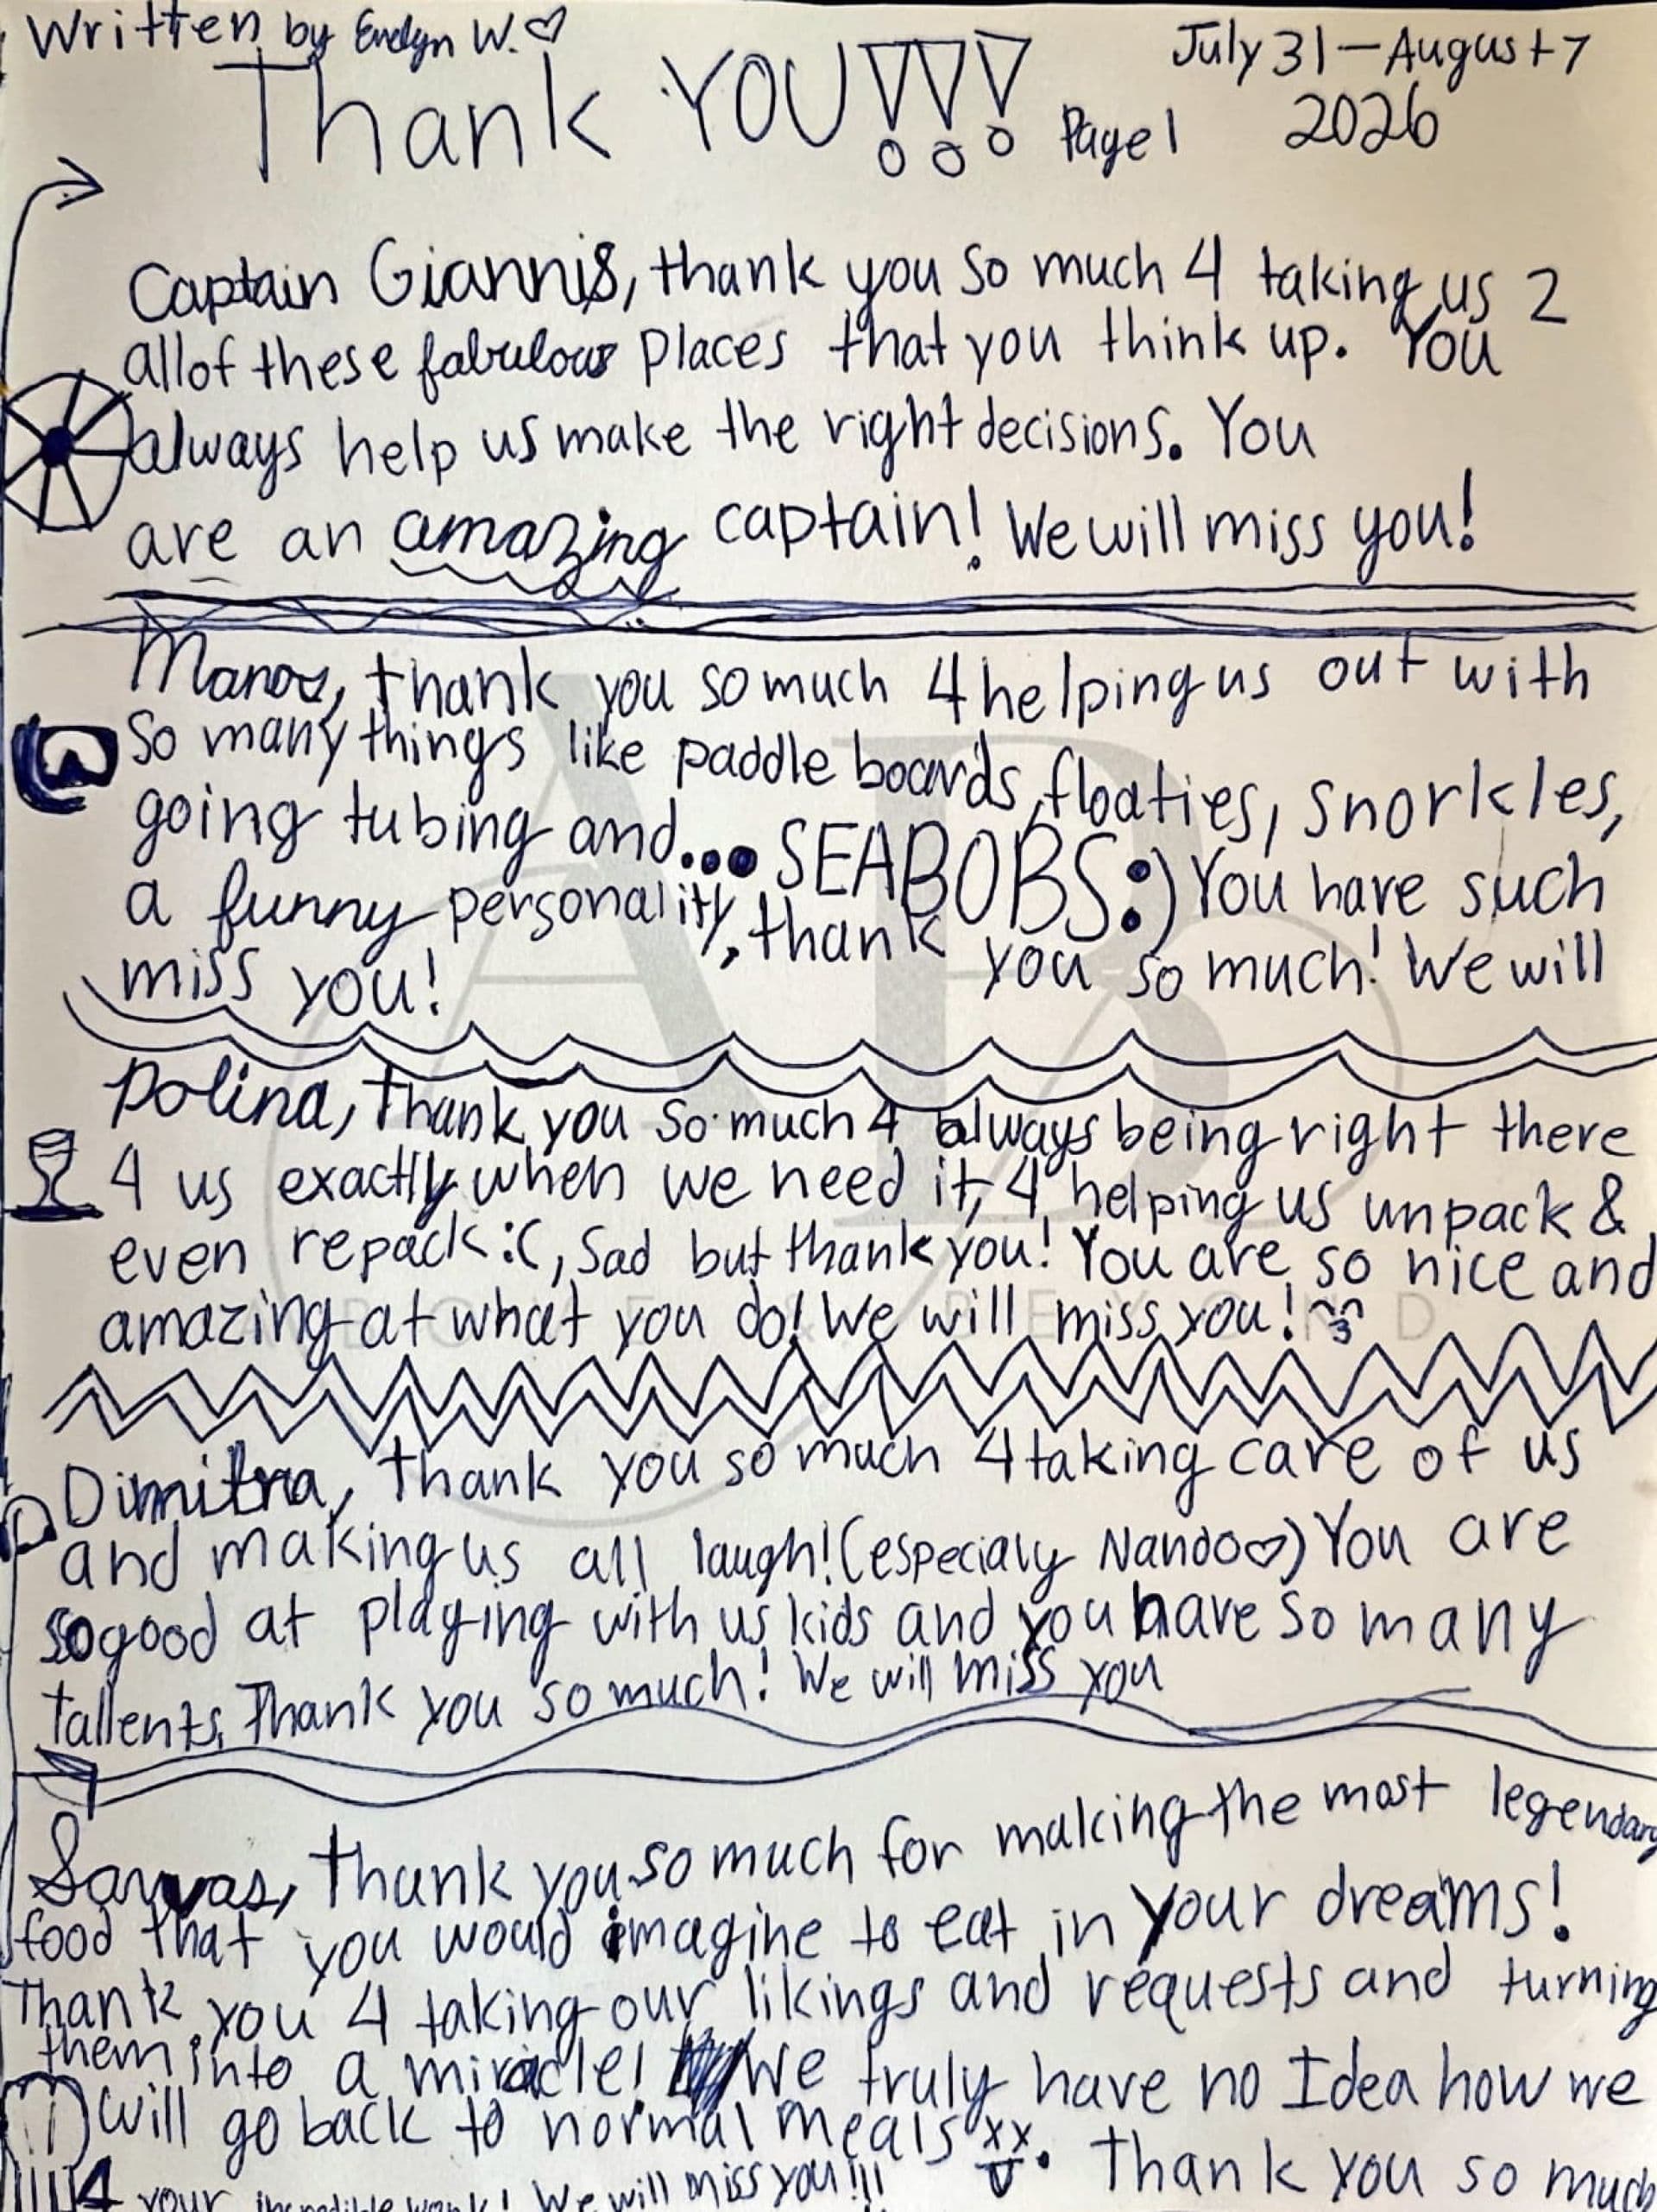 Written by Evelyn W.♡
July 31 – August 7
Thank YOU!!! Page 1 2026
Captain Giannis, thank you so much 4 taking us 2
all of these fabulous places that you think up. You
always help us make the right decisions. You
are an amazing captain! We will miss you!
Manos, thank you so much 4 helping us out with
so many things like paddle boards, floaties, snorkles,
going tubing and... SEABOBS:) You have such
a funny personality, thank you so much! We will
miss you!
Polina, thank you so much 4 always being right there
4 us exactly when we need it, 4 helping us unpack &
even repack :(, sad but thank you! You are so nice and
amazing at what you do! We will miss you!
Dimitra, thank you so much 4 taking care of us
and making us all laugh! (especialy Nando♡) You are
so good at playing with us kids and you have so many
tallents, Thank you so much! We will miss you
Savvas, thank you so much for making the most legendary
food that you would imagine to eat in your dreams!
Thank you 4 taking our likings and requests and turning
them into a miracle! We truly have no Idea how we
will go back to normal meals xx. Thank you so much
4 your incredible work! We will miss you!!!